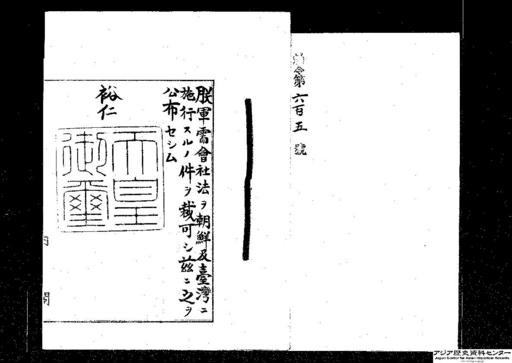 勅令第六百五號
朕軍需會社法ヲ朝鮮及臺灣ニ
施行スルノ件ヲ裁可シ茲ニ之ヲ
公布セシム
裕仁
天皇
御璽
内閣
アジア歴史資料センター
Japan Center for Asian Historical Records